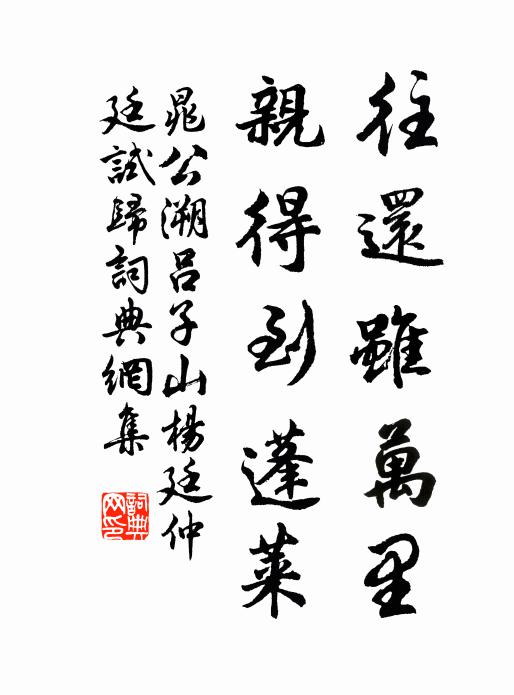 往還雖萬里
親得到蓬萊
晁公溯吕子山楊廷仲
廷試歸詞典網集
詞典
网印